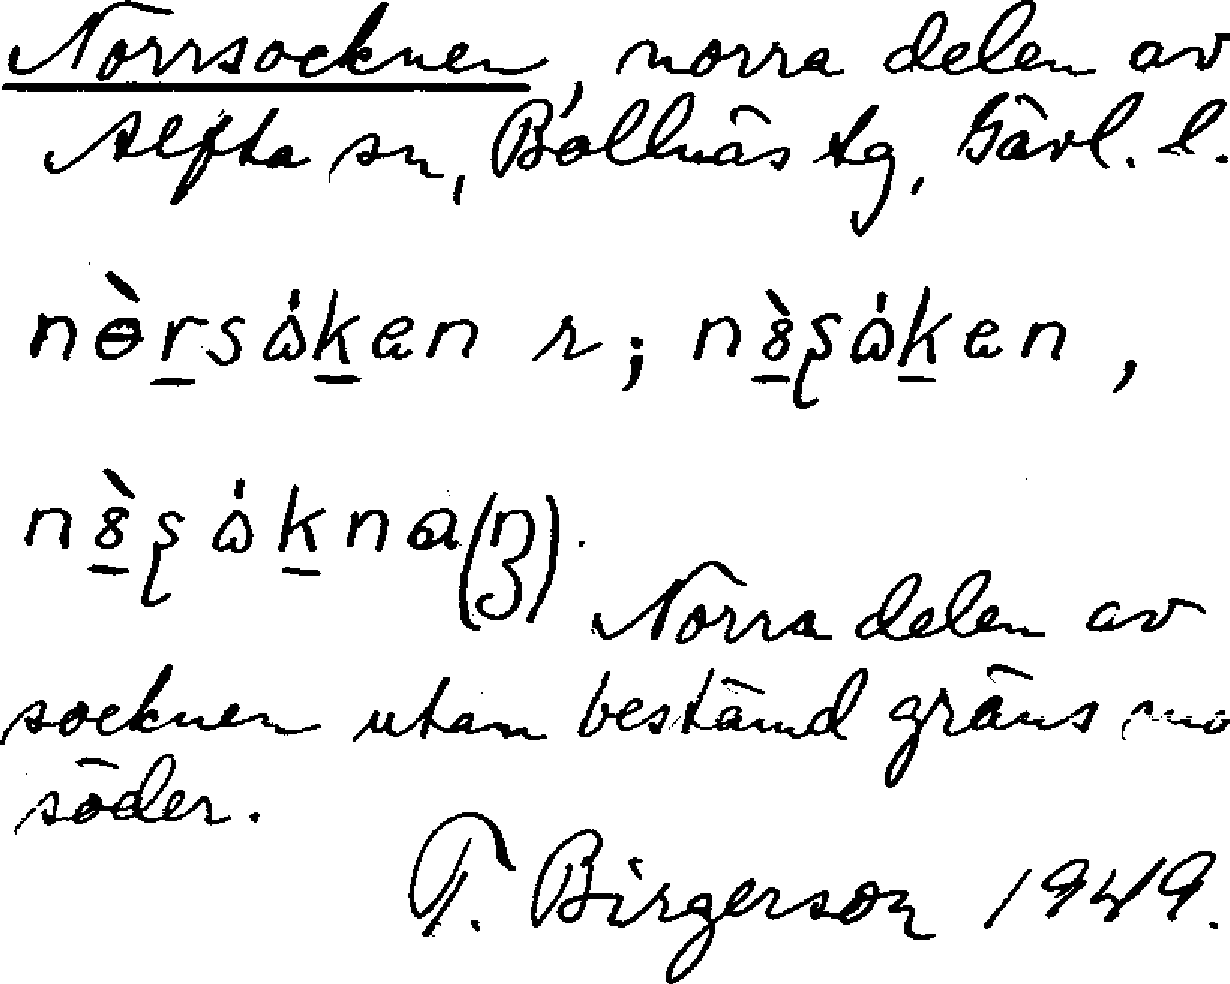 Norrsocknen, norra delen av
Alfta sn, Bollnäs tg, Gävl. l.
nɵ̀r̲sώk̲en r; n8̲̀ʂώk̲en,
n8̲̀ʂώk̲na(n).
Norra delen av
socknen utan bestämd gräns mo
söder.
T. Birgerson 1949.